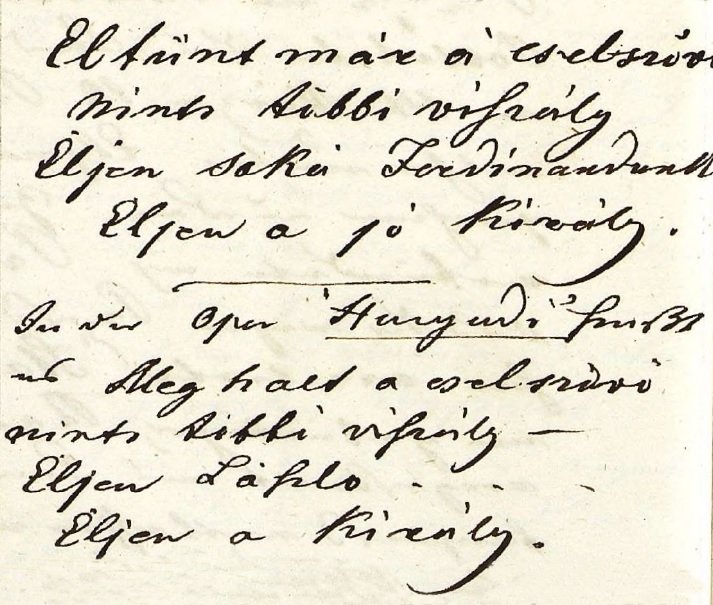 Eltünt már à cselszövő
nints többi viszály
Éljen soká Ferdinandunk
Éljen a jó Király.
In der Oper "Hunyadi" heißt
es Meg halt a cselszövő
nints többi viszály —
Éljen László . - -
Éljen a Király.